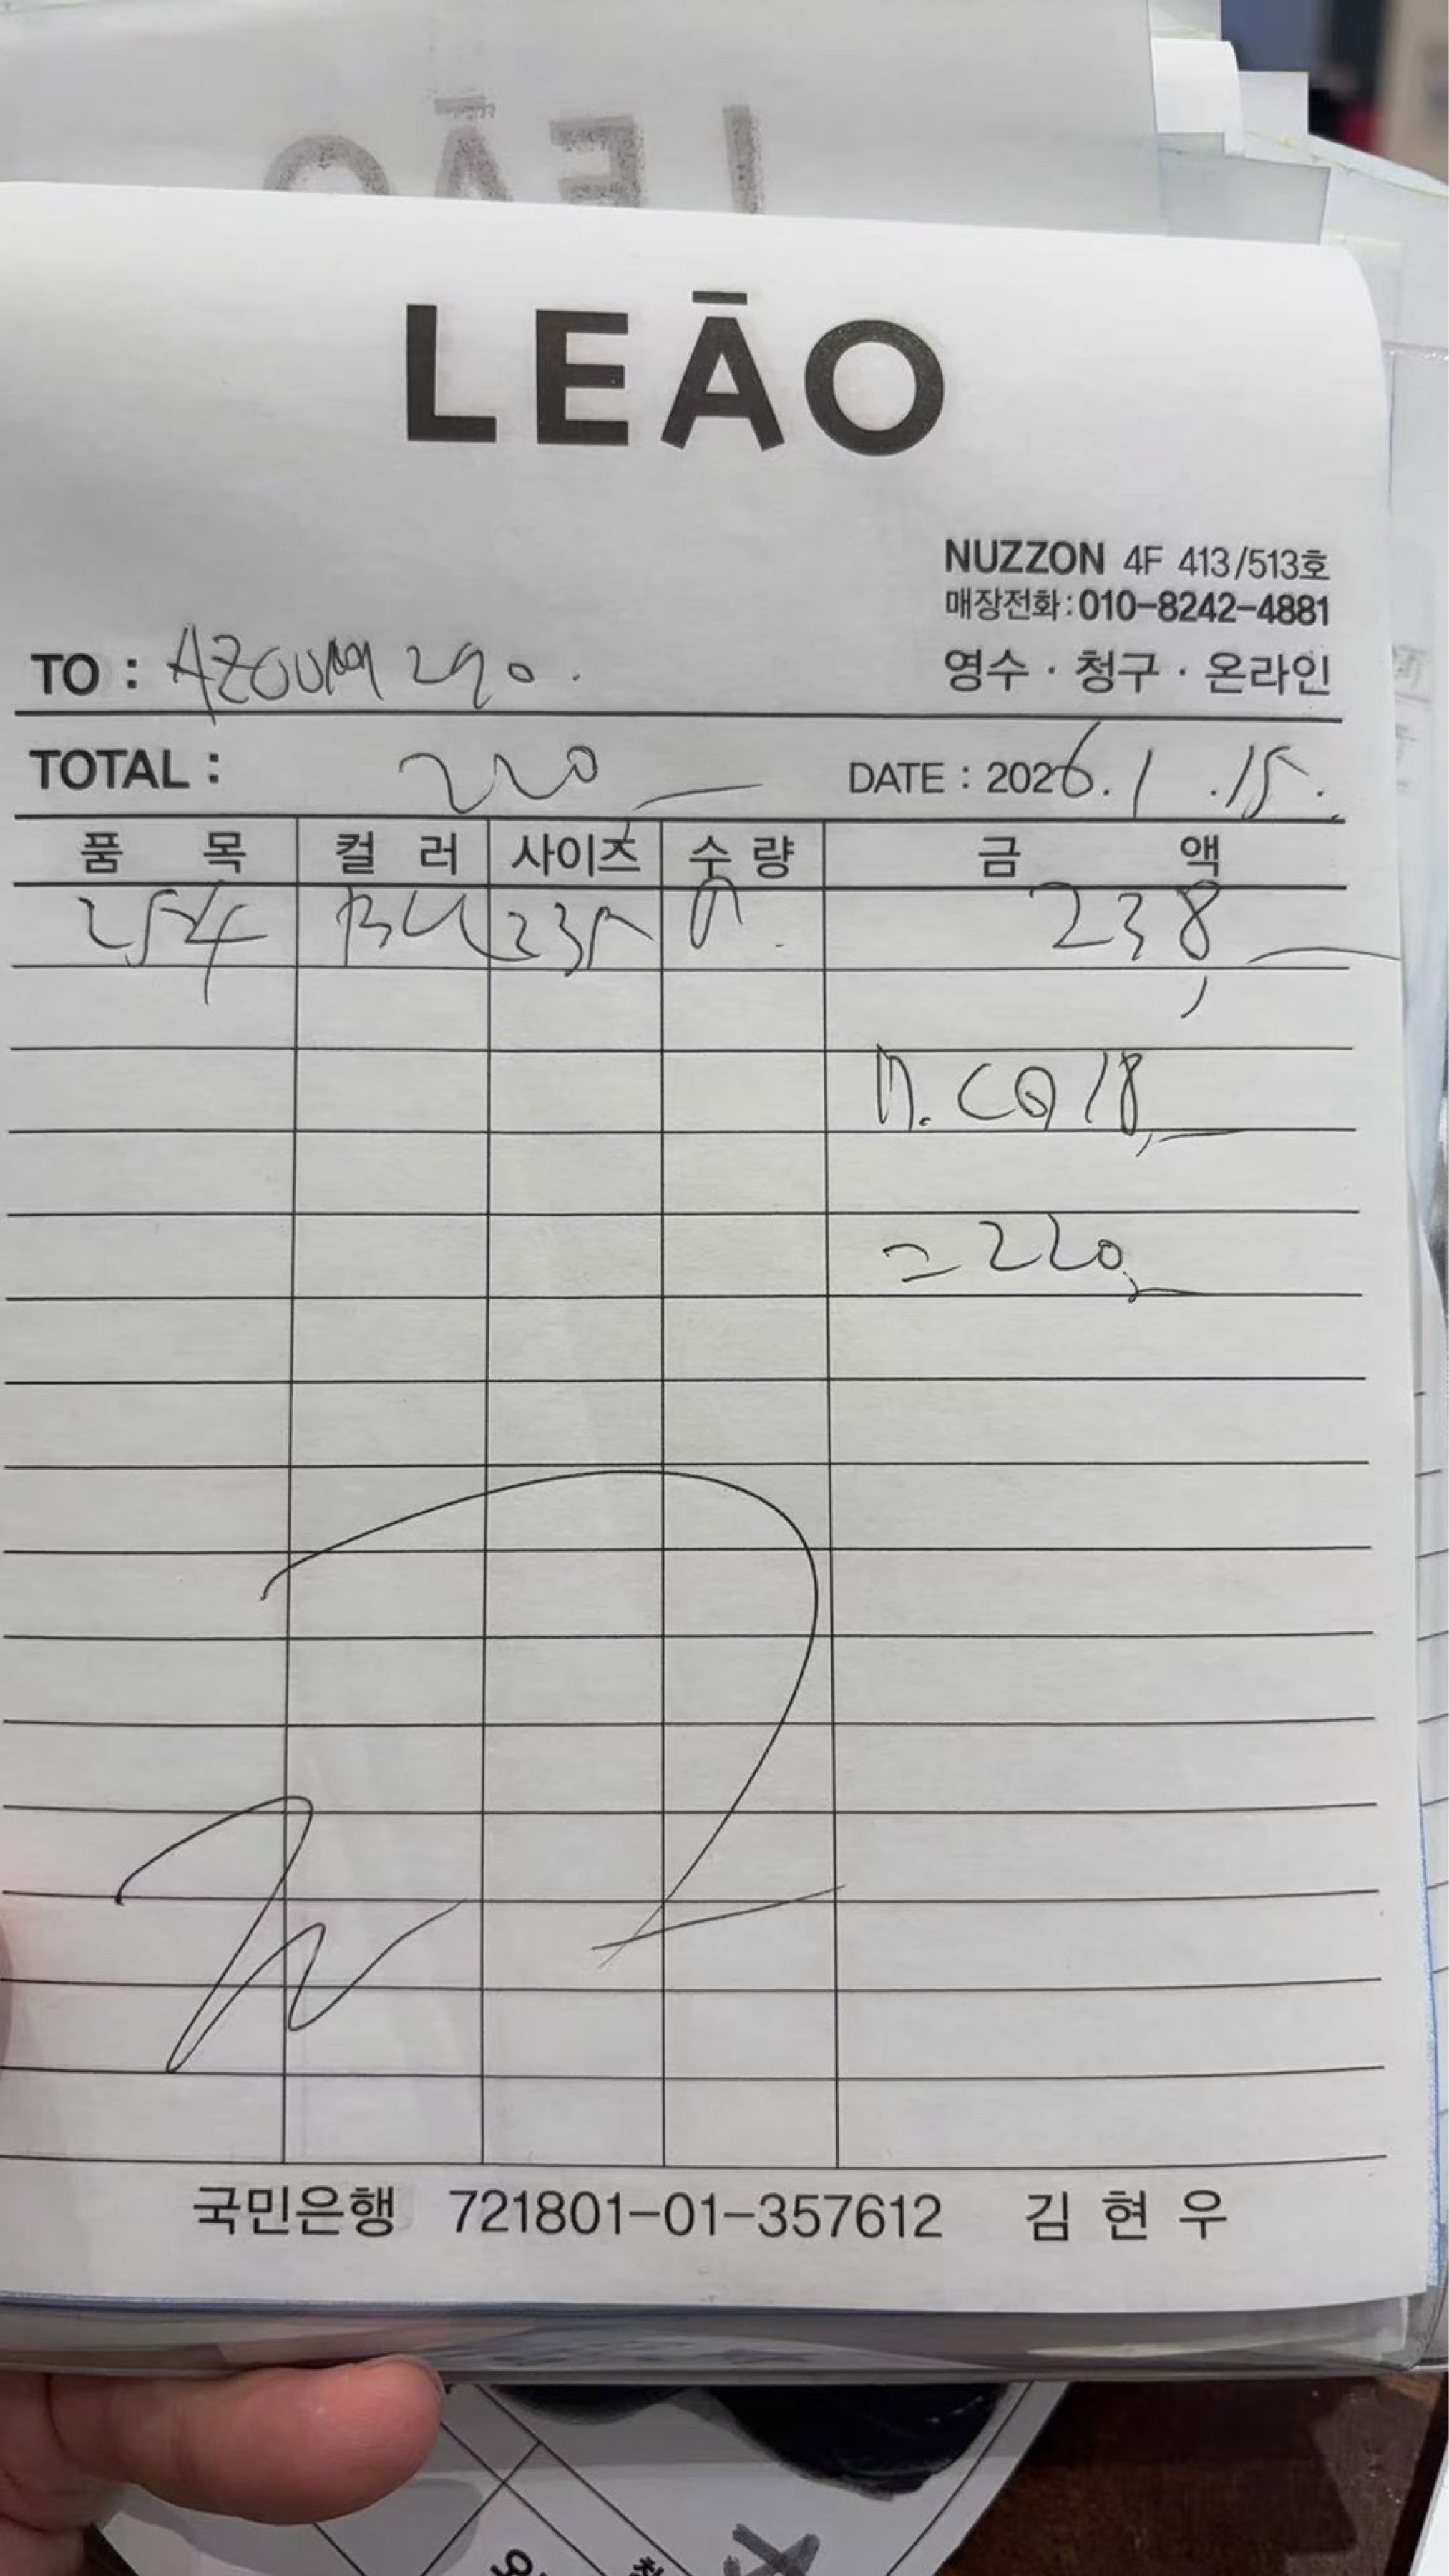 LEĀO
NUZZON 4F 413/513호
매장전화:010-8242-4881
TO : AZOUM 290.
영수 · 청구 · 온라인
TOTAL : 220
DATE : 2026.1.15.
품 목 컬 러 사이즈 수 량 금 액
254 BU 235 238,
18,
=220,
국민은행 721801-01-357612 김 현 우